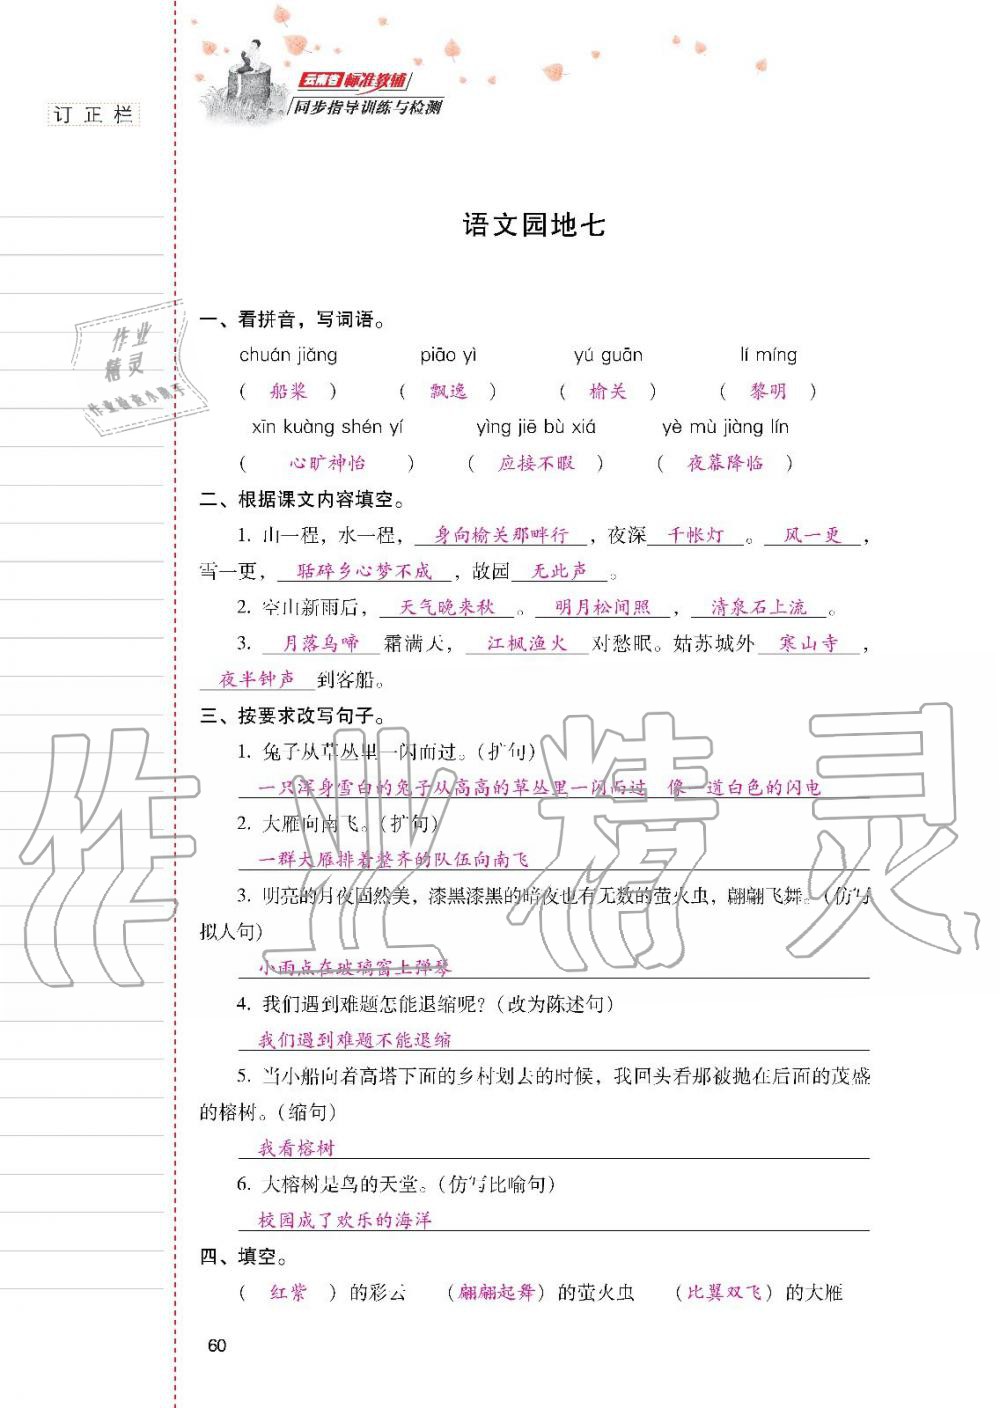 云南省标准教辅
同步指导训练与检测
订正栏
语文园地七
一、看拼音，写词语。
chuán jiǎng piāo yì yú guān lí míng
（ 船桨 ） （ 飘逸 ） （ 榆关 ） （ 黎明 ）
xīn kuàng shén yí yìng jiē bù xiá yè mù jiàng lín
（ 心旷神怡 ） （ 应接不暇 ） （ 夜幕降临 ）
作业
精灵
作业检查小助手
二、根据课文内容填空。
1. 山一程，水一程， 身向榆关那畔行 ，夜深 千帐灯 。 风一更 ，
雪一更， 聒碎乡心梦不成 ，故园 无此声 。
2. 空山新雨后， 天气晚来秋 。 明月松间照 ， 清泉石上流 。
3. 月落乌啼 霜满天， 江枫渔火 对愁眠。姑苏城外 寒山寺 ，
夜半钟声 到客船。
三、按要求改写句子。
1. 兔子从草丛里一闪而过。（扩句）
一只浑身雪白的兔子从高高的草丛里一闪而过 像一道白色的闪电
2. 大雁向南飞。（扩句）
一群大雁排着整齐的队伍向南飞
3. 明亮的月夜固然美，漆黑漆黑的暗夜也有无数的萤火虫，翩翩飞舞。（仿写
拟人句）
小雨点在玻璃窗上弹琴
4. 我们遇到难题怎能退缩呢？（改为陈述句）
我们遇到难题不能退缩
5. 当小船向着高塔下面的乡村划去的时候，我回头看那被抛在后面的茂盛
的榕树。（缩句）
我看榕树
6. 大榕树是鸟的天堂。（仿写比喻句）
校园成了欢乐的海洋
四、填空。
（ 红紫 ）的彩云 （翩翩起舞）的萤火虫 （比翼双飞）的大雁
60
作业精灵